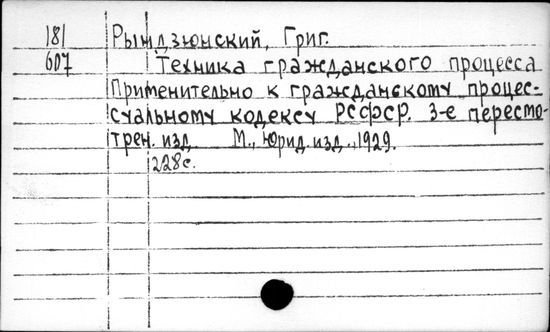 181 Рындзюнский, Григ.
607 Техника гражданского процесса
Применительно к гражданскому процес-
суальному кодексу РСФСР. 3-е пересмо-
трен. изд. М., Юрид. изд., 1929.
228 с.